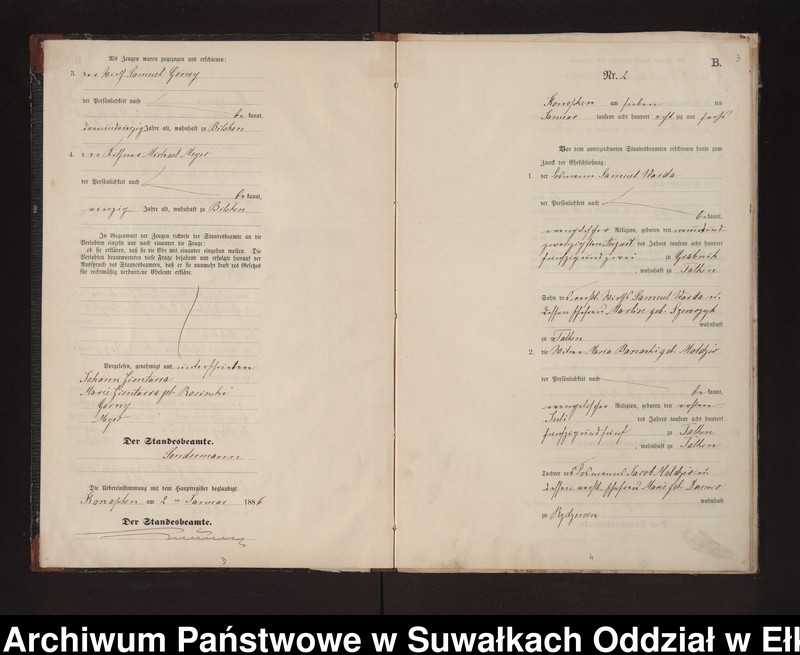 Als Zeugen waren zugezogen und erschienen:
3. der Wirth Samuel Gorny
der Persönlichkeit nach
be kannt,
Jahre alt, wohnhaft zu Bilsken
4. Michael Meyer
der Persönlichkeit nach
be kannt,
vierzig Jahre alt, wohnhaft zu Bilsken
In Gegenwart der Zeugen richtete der Standesbeamte an die
Verlobten einzeln und nach einander die Frage:
ob sie erklären, daß sie die Ehe mit einander eingehen wollen. Die
Verlobten beantworteten diese Frage bejahend und erfolgte hierauf der
Ausspruch des Standesbeamten, daß er sie nunmehr kraft des Gesetzes
für rechtmäßig verbundene Eheleute erkläre.
Vorgelesen, genehmigt und unterschrieben
Johann Zientarra
Marie Zientarra geb. Rosinski
Gorny
Meyer
Der Standesbeamte.
Sondermann
Die Uebereinstimmung mit dem Hauptregister beglaubigt
Konopken am 2 ten Januar 1886
Der Standesbeamte.
3
3
B.
Nr. 2
Konopken am sieben ten
Januar tausend acht hundert acht zig und sechs
Vor dem unterzeichneten Standesbeamten erschienen heute zum
Zweck der Eheschließung:
1. der Losmann Samuel Warda
der Persönlichkeit nach
be kannt,
evangelischer Religion, geboren den neunund
zwanzigsten August des Jahres tausend acht hundert
fünfzigundzwei zu Grabnik
, wohnhaft zu Talken
Sohn des verst. Wirths Samuel Warda u.
dessen Ehefrau Marlise geb. Szewczyk
wohnhaft
zu Talken
2. die Wittwe Maria Banaski geb. Moldzio
der Persönlichkeit nach
be kannt,
evangelischer Religion, geboren den ersten
Juli des Jahres tausend acht hundert
fünfzigundfünf zu Talken
, wohnhaft zu Talken
Tochter des Losmanns Jacob Moldzio u.
dessen verst. Ehefrau Marie geb.
wohnhaft
zu Rydzewen
4
Archiwum Państwowe w Suwałkach Oddział w Ełk